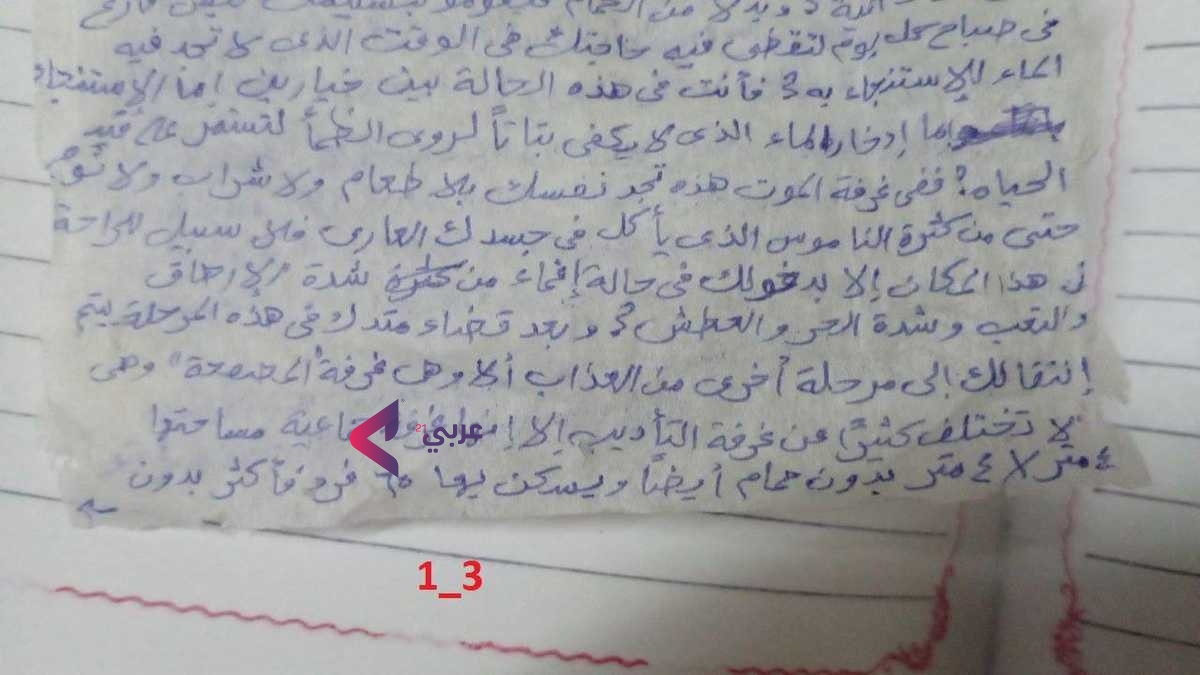 آنية ؟ وبدلا من الحمام فيقوموا بتسليمك كيس فارغ
فى صباح كل يوم لتقضى فيه حاجتك فى الوقت الذى لا تجد فيه
الماء للإستنجاء به ؟ فأنت فى هذه الحالة بين خيارين إما الإستنجاء
وإما إدخار الماء الذى لا يكفى بتاتاً لروى الظمأ لتستمر على قيد
الحياه ؟ ففى غرفة الموت هذه تجد نفسك بلا طعام ولا شراب ولا نوم
حتى من كثرة الناموس الذى يأكل فى جسدك العارى فلا سبيل للراحة
فى هذا المكان إلا بدخولك فى حالة إغماء من شدة الإرهاق
والتعب وشدة الحر والعطش ؟ وبعد قضاء مدتك فى هذه المرحلة يتم
إنتقالك إلى مرحلة أخرى من العذاب ألا وهى غرفة "المصفحة" وهى
لا تختلف كثيرًا عن غرفة التأديب إلا جماعية مساحتها
٤ متر لا ٤ متر بدون حمام أيضًا ويسكن بها فرد فأكثر بدون
عربي21
1_3